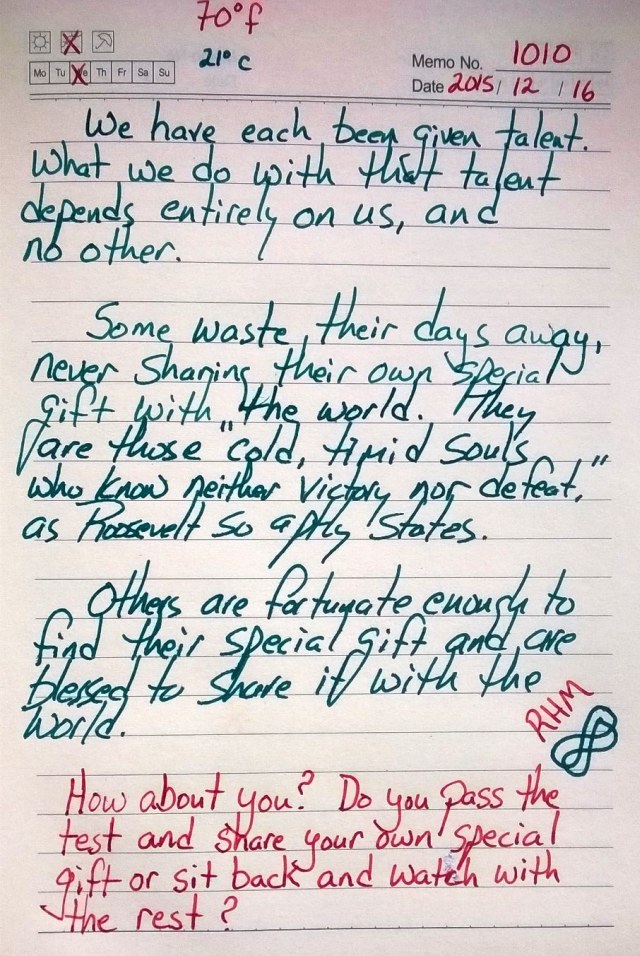 70°f
21° c
Mo Tu We Th Fr Sa Su
Memo No. 1010
Date 2015 / 12 / 16
We have each been given talent.
What we do with that talent
depends entirely on us, and
no other.
Some waste their days away,
never sharing their own special
gift with the world. They
are those "cold, timid souls
who know neither victory nor defeat,"
as Roosevelt so aptly states.
Others are fortunate enough to
find their special gift and are
blessed to share it with the
world.
RHM
How about you? Do you pass the
test and share your own special
gift or sit back and watch with
the rest?